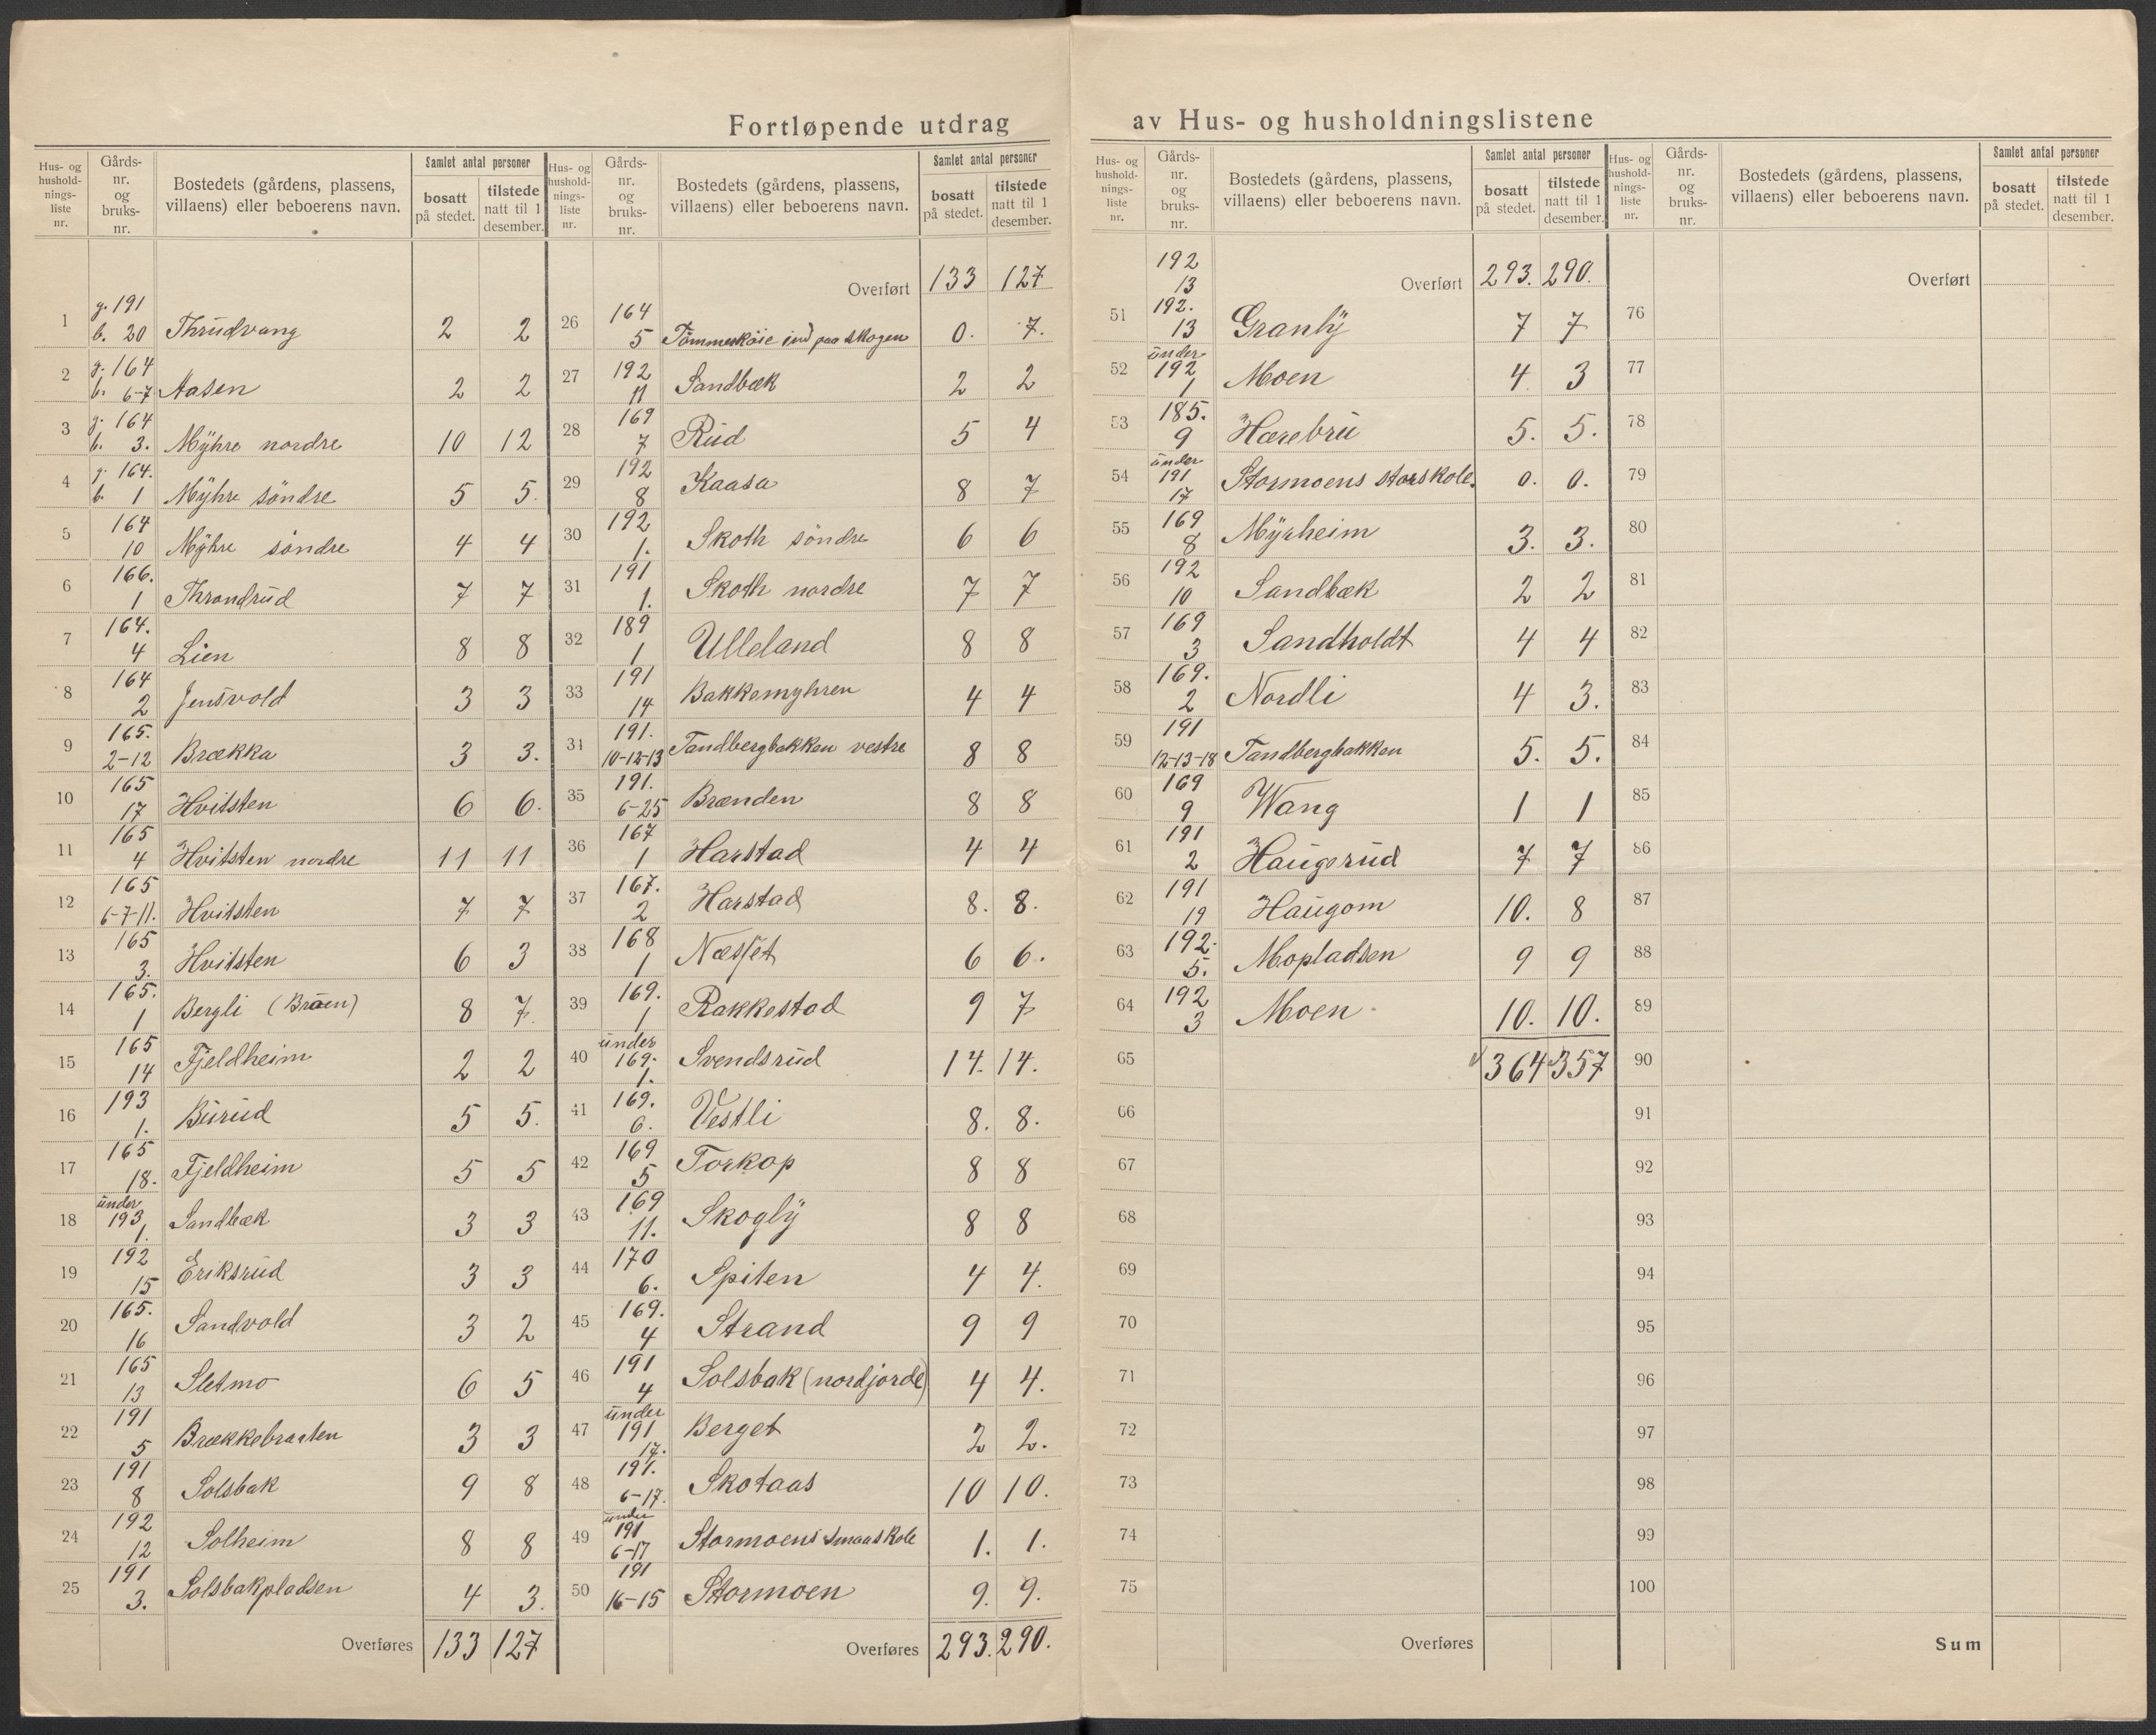 Fortløpende utdrag av Hus- og husholdningslistene
Hus- og husholdningsliste nr. | Gårdsnr. og bruksnr. | Bostedets (gårdens, plassens, villaens) eller beboerens navn. | Samlet antal personer bosatt på stedet. | tilstede natt til 1 desember.
1 g. 191 b. 20 Thrudvang 2 2
2 g. 164 b. 6-7 Aasen 2 2
3 g. 164 b. 3. Myhre nordre 10 12
4 g. 164. b. 1 Myhre söndre 5 5.
5 164 10 Myhre söndre 4 4
6 166. 1 Throndrud 7 7
7 164. 4 Lien 8 8
8 164 2 Jensvold 3 3
9 165. 2-12 Brækka 3 3.
10 165 17 Hvitsten 6 6.
11 165 4 Hvitsten nordre 11 11
12 165 6-7-11. Hvitsten 7 7
13 165 3. Hvitsten 6 3
14 165. 1 Bergli (Bråen) 8 7.
15 165 14 Fjeldheim 2 2
16 193 1. Burud 5 5.
17 165 18. Fjeldheim 5 5
18 under 193 1. Sandbæk 3 3
19 192 15 Eriksrud 3 3
20 165. 16 Sandvold 3 2
21 165 13 Sletmo 6 5
22 191 5 Brækkebraaten 3 3
23 191 8 Solsbak 9 8
24 192 12 Solheim 8 8
25 191 3. Solsbakpladsen 4 3.
Overføres 133 127
Hus- og husholdningsliste nr. | Gårdsnr. og bruksnr. | Bostedets (gårdens, plassens, villaens) eller beboerens navn. | Samlet antal personer bosatt på stedet. | tilstede natt til 1 desember.
Overført 133 127
26 164 5 Tömmerköie ind paa skogen 0. 7.
27 192 11 Sandbæk 2 2
28 169 7 Rud 5 4
29 192 8 Kaasa 8 7
30 192 1. Skoth söndre 6 6
31 191 1. Skoth nordre 7 7
32 189 1 Ulleland 8 8
33 191 14 Bakkemyhren 4 4
34 191. 10-12-13 Tandbergbakken vestre 8 8
35 191. 6-25 Brænden 8 8
36 167 1 Harstad 4 4
37 167. 2 Harstad 8. 8.
38 168 1 Næsset 6 6.
39 169. 1 Rakkestad 9 7
40 under 169. 1. Svendsrud 14. 14.
41 169. 6. Vestli 8. 8.
42 169 5 Torkop 8 8
43 169 11. Skogly 8 8
44 170 6. Spiten 4 4.
45 169. 4 Strand 9 9
46 191 4 Solsbak (nordjorde) 4 4.
47 under 191 17. Berget 2 2.
48 191. 6-17. Skotaas 10 10.
49 under 191 6-17 Stormoens smaaskole 1. 1.
50 191 16-15 Stormoen 9. 9.
Overføres 293. 290.
Hus- og husholdningsliste nr. | Gårdsnr. og bruksnr. | Bostedets (gårdens, plassens, villaens) eller beboerens navn. | Samlet antal personer bosatt på stedet. | tilstede natt til 1 desember.
192 13 Overført 293. 290.
51 192. 13 Granly 7 7
52 under 192 1 Moen 4 3
53 185. 9 Hærebru 5. 5.
54 under 191 17 Stormoens storskole. 0. 0.
55 169 8 Myrheim 3. 3.
56 192 10 Sandbæk 2 2
57 169 3 Sandholdt 4 4
58 169. 2 Nordli 4 3.
59 191 12-13-18 Tandbergbakken 5. 5.
60 169 9 Wang 1 1
61 191 2 Haugerud 7 7
62 191 19 Haugom 10. 8
63 192. 5. Mopladsen 9 9
64 192 3 Moen 10. 10.
65 364 357
66
67
68
69
70
71
72
73
74
75
Overføres
Hus- og husholdningsliste nr. | Gårdsnr. og bruksnr. | Bostedets (gårdens, plassens, villaens) eller beboerens navn. | Samlet antal personer bosatt på stedet. | tilstede natt til 1 desember.
Overført
76
77
78
79
80
81
82
83
84
85
86
87
88
89
90
91
92
93
94
95
96
97
98
99
100
Sum